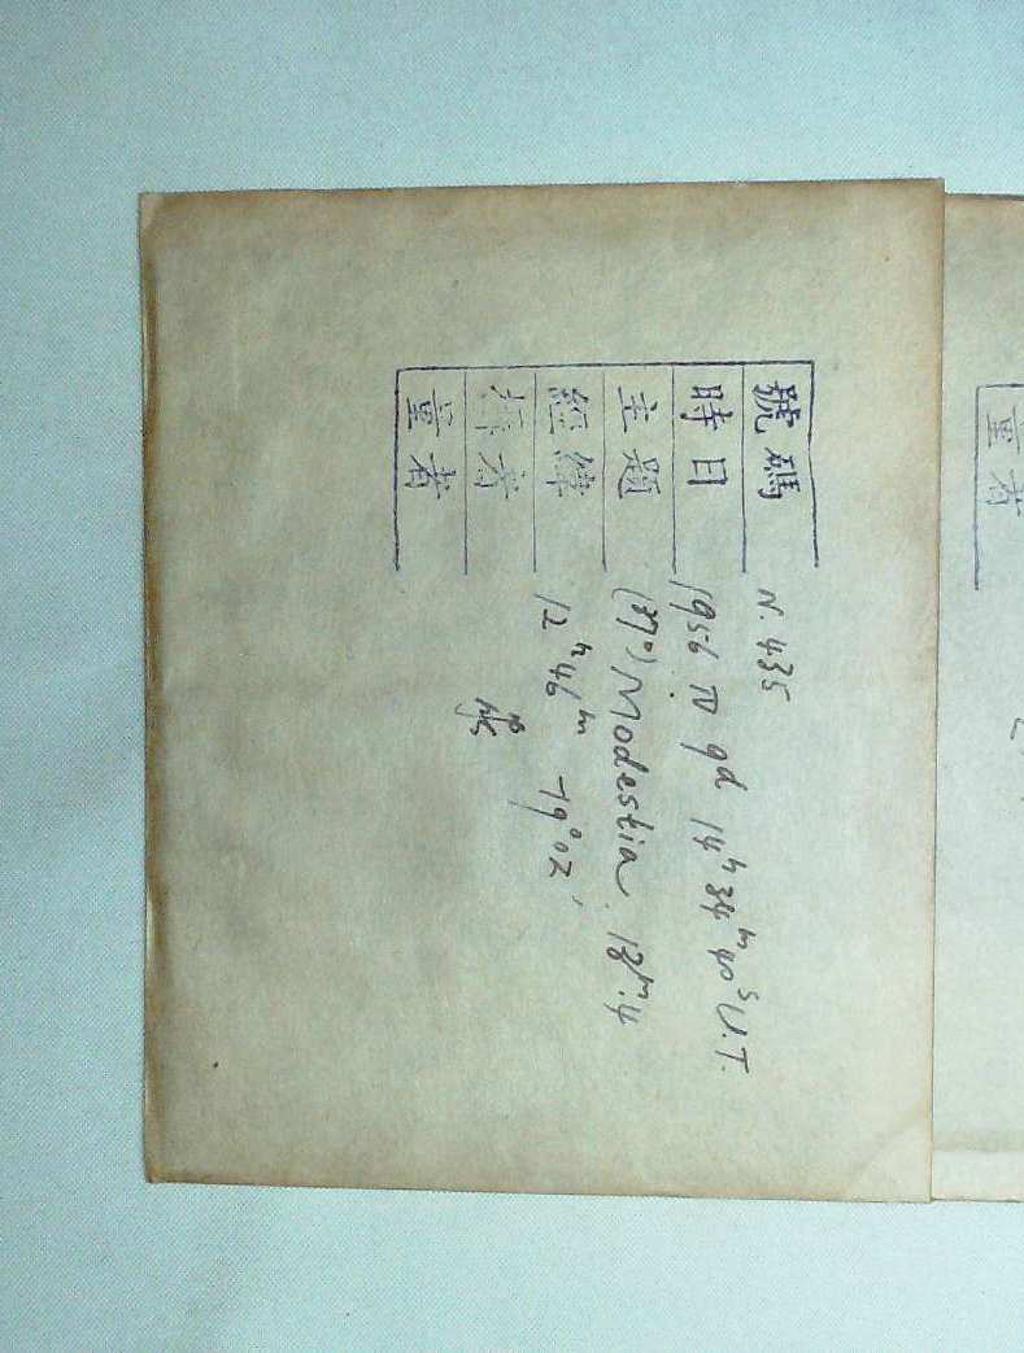 號碼 N. 435
時日 1956 IV 9d 14ʰ 34ᵐ 40ˢ U.T.
主題 (370) Modestia. 13ᵐ.4
經緯 12ʰ46ᵐ -19°02'
者
量者
量者